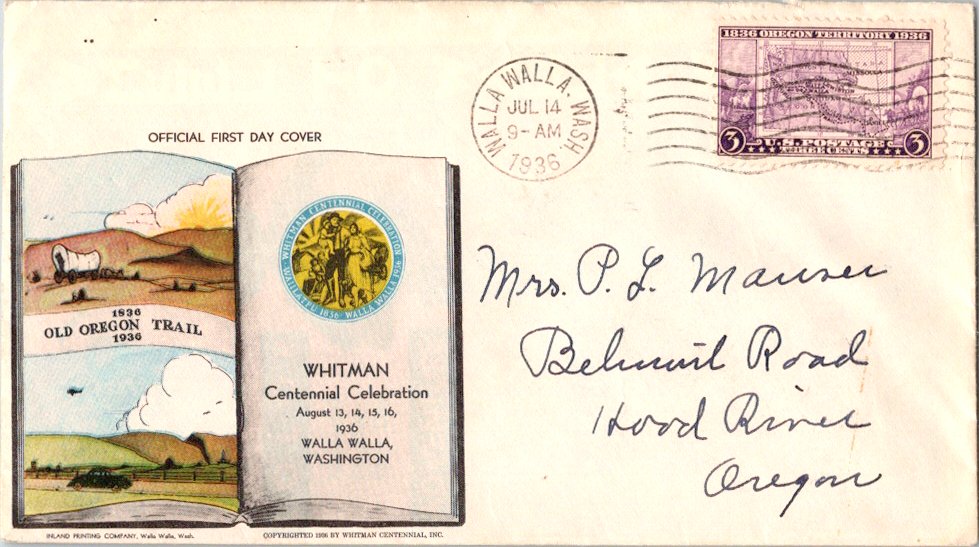 1836 OREGON TERRITORY 1936
MISSOULA
3 U.S. POSTAGE 3
THREE CENTS
WALLA WALLA, WASH.
JUL 14
9-AM
1936
OFFICIAL FIRST DAY COVER
1836
OLD OREGON TRAIL
1936
WHITMAN CENTENNIAL CELEBRATION
WAIILATPU 1836 WALLA WALLA 1936
WHITMAN
Centennial Celebration
August 13, 14, 15, 16,
1936
WALLA WALLA,
WASHINGTON
Mrs. P. L. Manser
Belmont Road
Hood River
Oregon
INLAND PRINTING COMPANY, Walla Walla, Wash.
COPYRIGHTED 1936 BY WHITMAN CENTENNIAL, INC.